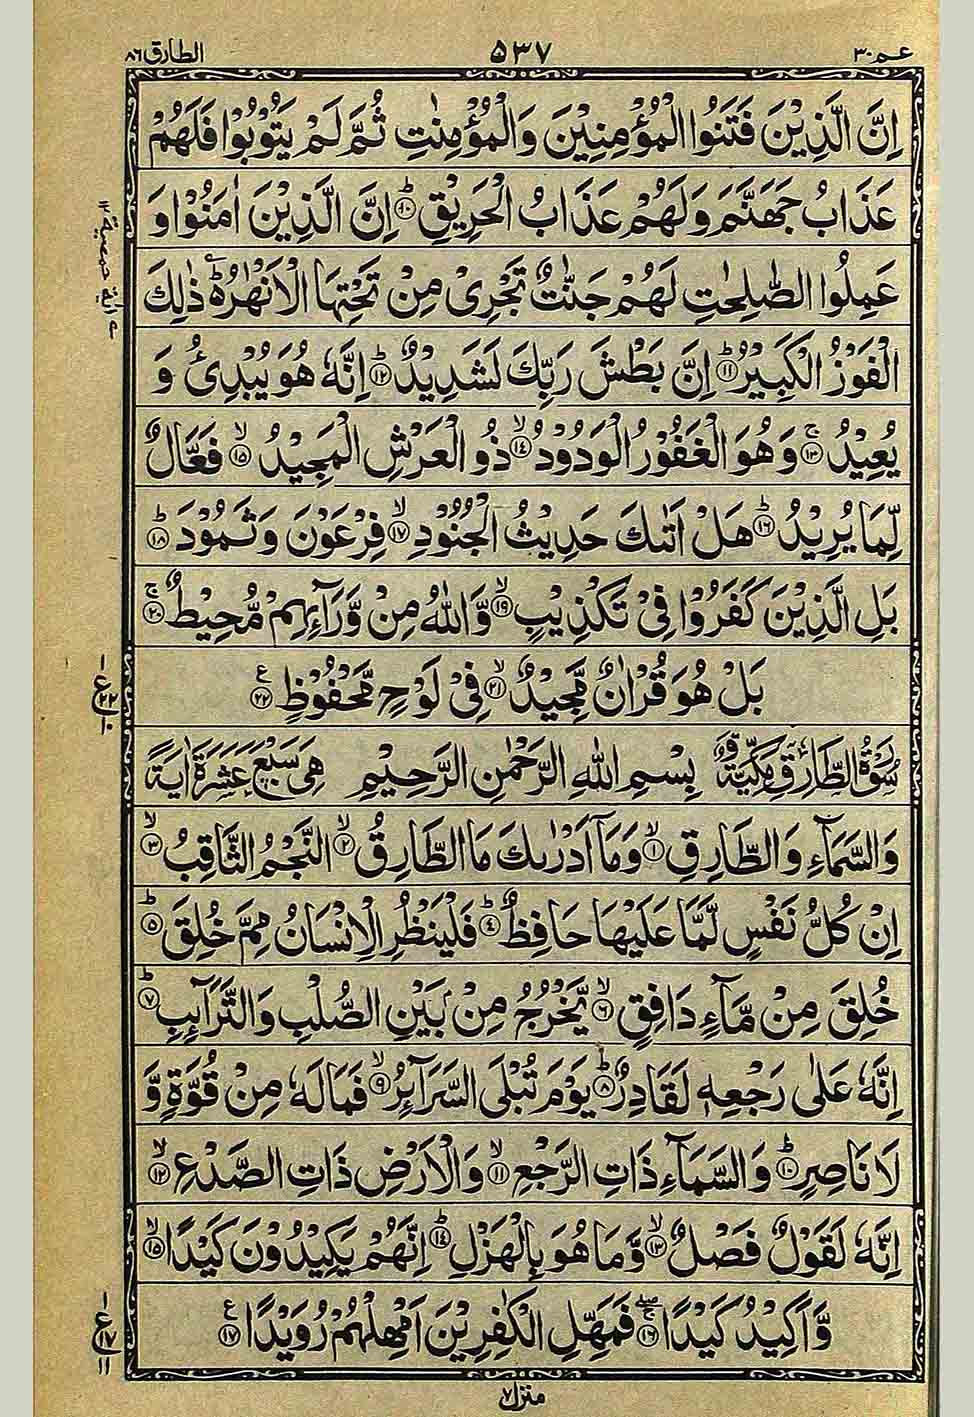 عم ٣٠ ٥٣٧ الطارق ٨٦
اِنَّ الَّذِيْنَ فَتَنُوا الْمُؤْمِنِيْنَ وَالْمُؤْمِنٰتِ ثُمَّ لَمْ يَتُوْبُوْا فَلَهُمْ
عَذَابُ جَهَنَّمَ وَلَهُمْ عَذَابُ الْحَرِيْقِ ؕ ١٠ اِنَّ الَّذِيْنَ اٰمَنُوْا وَ
عَمِلُوا الصّٰلِحٰتِ لَهُمْ جَنّٰتٌ تَجْرِىْ مِنْ تَحْتِهَا الْاَنْهٰرُ ؕ ذٰلِكَ
الْفَوْزُ الْكَبِيْرُ ؕ ١١ اِنَّ بَطْشَ رَبِّكَ لَشَدِيْدٌ ؕ ١٢ اِنَّهٗ هُوَ يُبْدِئُ وَ
يُعِيْدُ ۚ ١٣ وَهُوَ الْغَفُوْرُ الْوَدُوْدُ ۙ ١٤ ذُو الْعَرْشِ الْمَجِيْدُ ۙ ١٥ فَعَّالٌ
لِّمَا يُرِيْدُ ؕ ١٦ هَلْ اَتٰىكَ حَدِيْثُ الْجُنُوْدِ ۙ ١٧ فِرْعَوْنَ وَثَمُوْدَ ؕ ١٨
بَلِ الَّذِيْنَ كَفَرُوْا فِىْ تَكْذِيْبٍ ۙ ١٩ وَّاللّٰهُ مِنْ وَّرَآئِهِمْ مُّحِيْطٌ ۚ ٢٠
بَلْ هُوَ قُرْاٰنٌ مَّجِيْدٌ ۙ ٢١ فِىْ لَوْحٍ مَّحْفُوْظٍ ع ٢٢
سُوْرَةُ الطَّارِقِ مَكِّيَّةٌ وَّ بِسْمِ اللّٰهِ الرَّحْمٰنِ الرَّحِيْمِ هِىَ سَبْعَ عَشَرَةَ اٰيَةً
وَالسَّمَآءِ وَالطَّارِقِ ۙ ١ وَمَآ اَدْرٰىكَ مَا الطَّارِقُ ۙ ٢ النَّجْمُ الثَّاقِبُ ۙ ٣
اِنْ كُلُّ نَفْسٍ لَّمَّا عَلَيْهَا حَافِظٌ ؕ ٤ فَلْيَنْظُرِ الْاِنْسَانُ مِمَّ خُلِقَ ؕ ٥
خُلِقَ مِنْ مَّآءٍ دَافِقٍ ۙ ٦ يَّخْرُجُ مِنْ بَيْنِ الصُّلْبِ وَالتَّرَآئِبِ ؕ ٧
اِنَّهٗ عَلٰى رَجْعِهٖ لَقَادِرٌ ؕ ٨ يَوْمَ تُبْلَى السَّرَآئِرُ ۙ ٩ فَمَا لَهٗ مِنْ قُوَّةٍ وَّ
لَا نَاصِرٍ ؕ ١٠ وَالسَّمَآءِ ذَاتِ الرَّجْعِ ۙ ١١ وَالْاَرْضِ ذَاتِ الصَّدْعِ ۙ ١٢
اِنَّهٗ لَقَوْلٌ فَصْلٌ ۙ ١٣ وَّمَا هُوَ بِالْهَزْلِ ؕ ١٤ اِنَّهُمْ يَكِيْدُوْنَ كَيْدًا ۙ ١٥
وَّاَكِيْدُ كَيْدًا ١٦ فَمَهِّلِ الْكٰفِرِيْنَ اَمْهِلْهُمْ رُوَيْدًا ع ١٧
منزل ٧